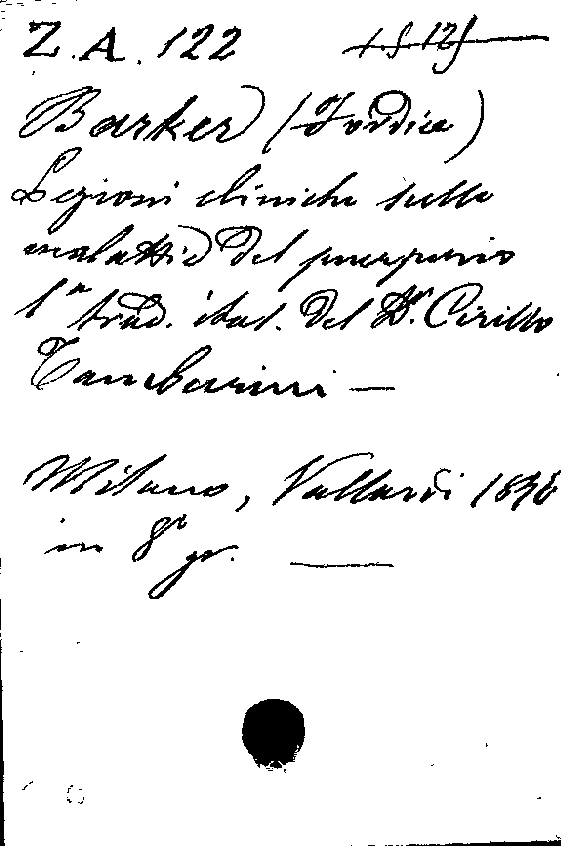 Z. A. 122
Barker (Fordice)
Lezioni cliniche sulle
malattie del puerperio
1ª trad. ital. del Dr. Cirillo
Tamburini —
Milano, Vallardi
in 8° gr. —